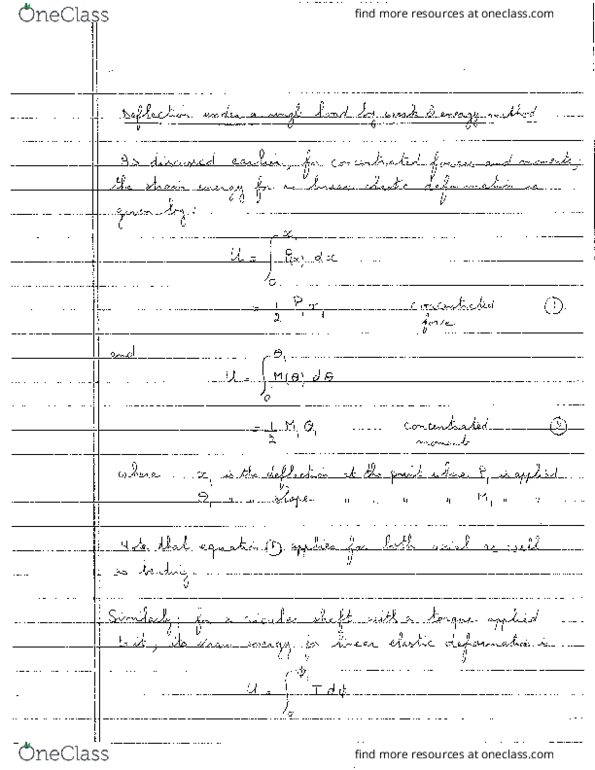 OneClass
find more resources at oneclass.com
Deflection under a single load by work & energy method
As discussed earlier, for concentrated forces and moments,
the strain energy for a linear elastic deformation is
given by:
U = ∫₀^x₁ P(x) dx
= 1/2 P₁ x₁ concentrated force ①
and
U = ∫₀^θ₁ M(θ) dθ
= 1/2 M₁ θ₁ concentrated moment ②
where x₁ is the deflection at the point where P₁ is applied
θ₁ " " slope " " " " M₁ " "
Note that equation ① applies for both axial as well
as bending.
Similarly, for a circular shaft with a torque applied
to it, its strain energy for linear elastic deformation is
U = ∫₀^ϕ₁ T dϕ
OneClass
find more resources at oneclass.com